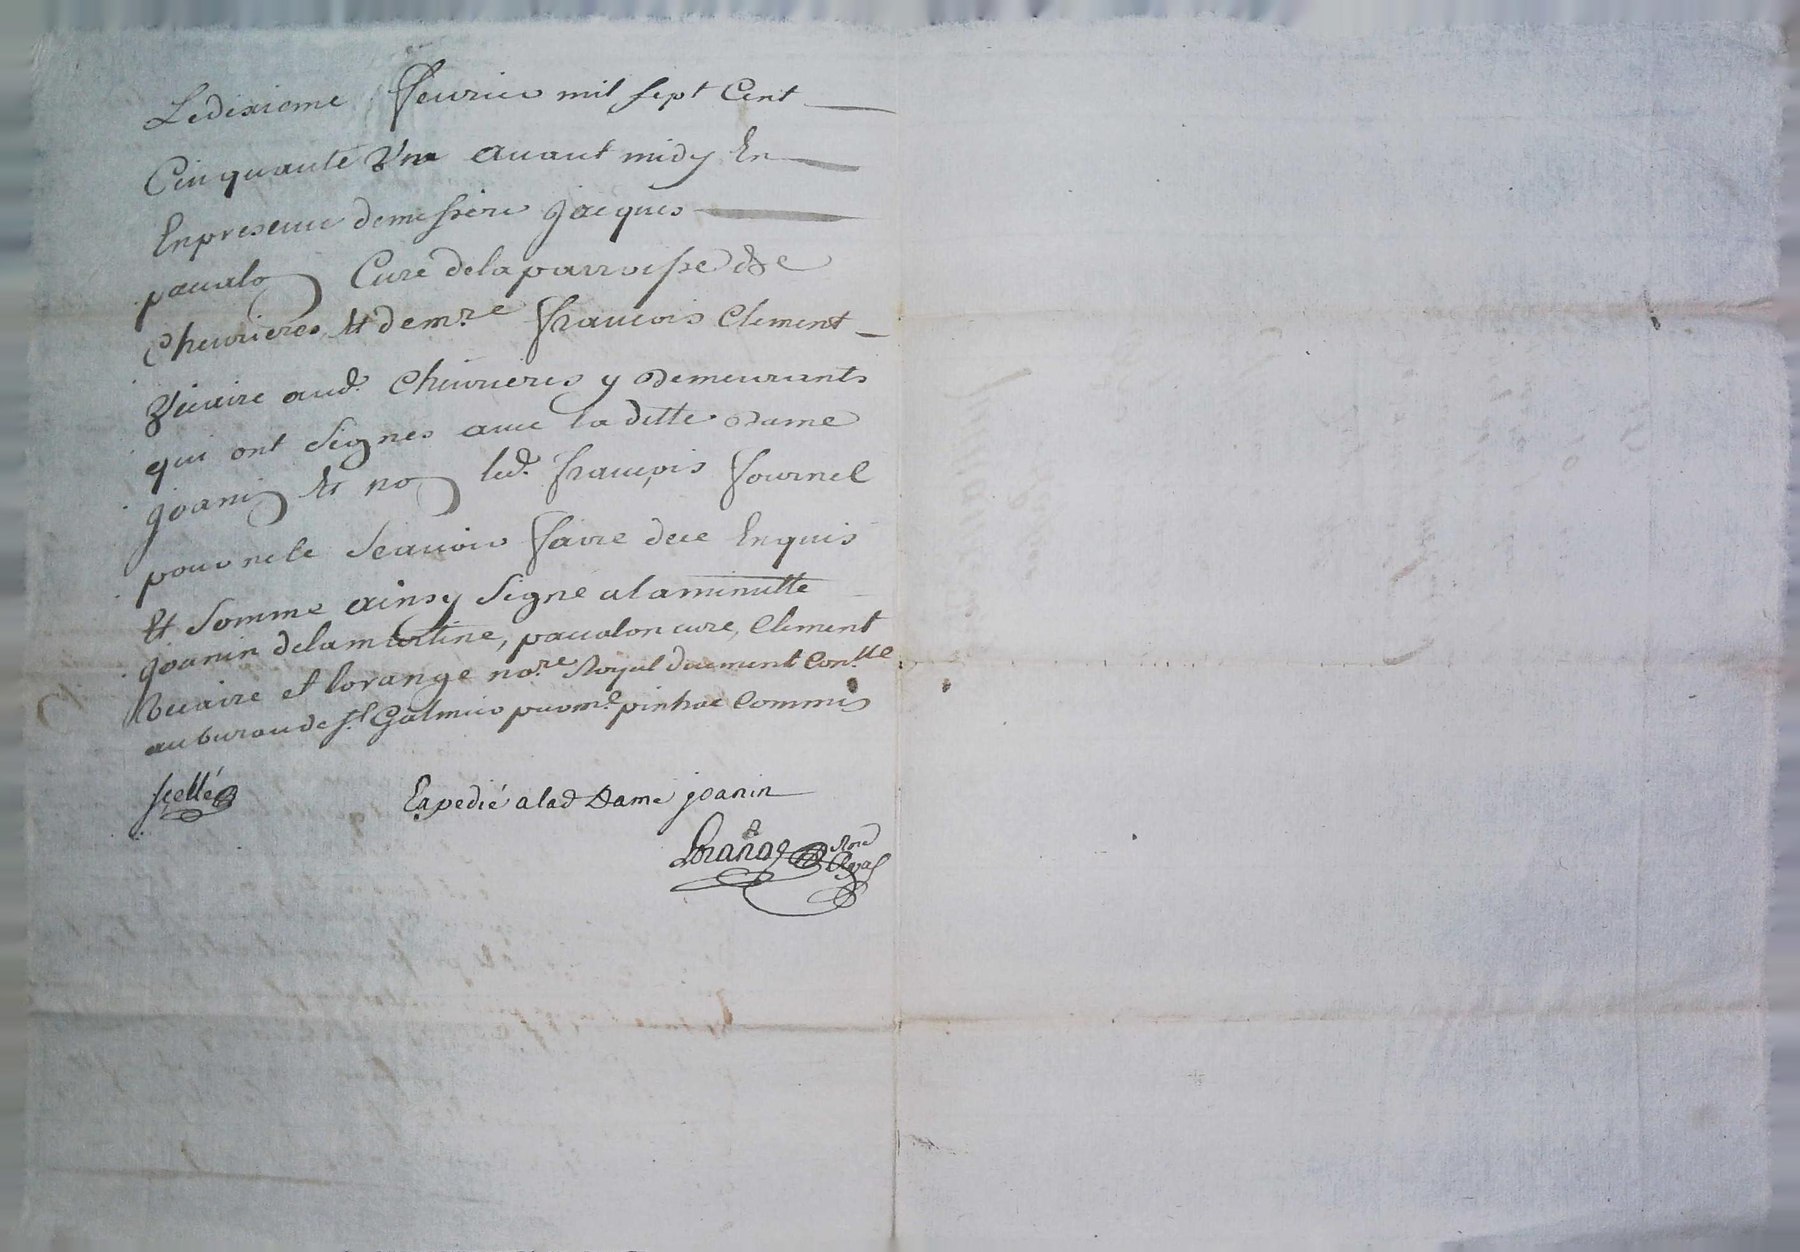 Le dixieme feurier mil sept Cent
Cinquante Vn auant midy En
En presence de messire Jacques
paualon Curé de la parroisse de
Cheurieres Et de mre francois Clement
Vicaire aud. Cheurieres y demeurants
qui ont Signes auec la ditte Dame
Joanin Et non led. françois fournel
pour ne le Scauoir faire de ce Enquis
Et Sommé ainsy Signé a la minutte
Joanin delamartine, paualon curé, Clement
Vicaire et Lorange nore Royal duement Conllé
au bureau de St. Galmier par me. pinhac Commis
scellé
Expedié a lad Dame joanin
Lorange Nore
Royal